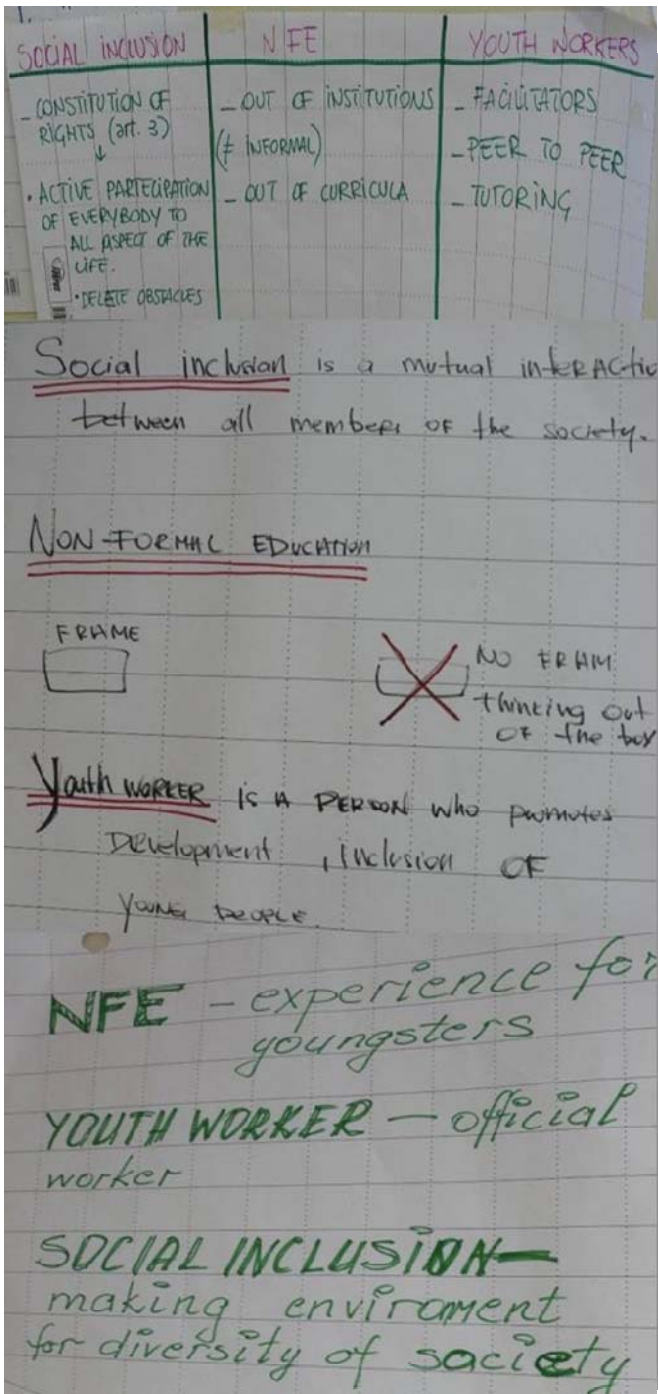 SOCIAL INCLUSION
- CONSTITUTION OF
RIGHTS (art. 3)
↓
• ACTIVE PARTECIPATION
OF EVERYBODY TO
ALL ASPECT OF THE
LIFE.
• DELETE OBSTACLES
NFE
- OUT OF INSTITUTIONS
(≠ INFORMAL)
- OUT OF CURRICULA
YOUTH WORKERS
- FACILITATORS
- PEER TO PEER
- TUTORING
Social inclusion is a mutual interACtio
between all members OF the society.
NON-FORMAL EDUCATION
FRAME
NO FRAM
thinking out
OF the box
Youth WORKER IS A PERSON who promotes
Development, inclusion OF
YOUNG PEOPLE.
NFE - experience for
youngsters
YOUTH WORKER - official
worker
SOCIAL INCLUSION-
making enviroment
for diversity of society